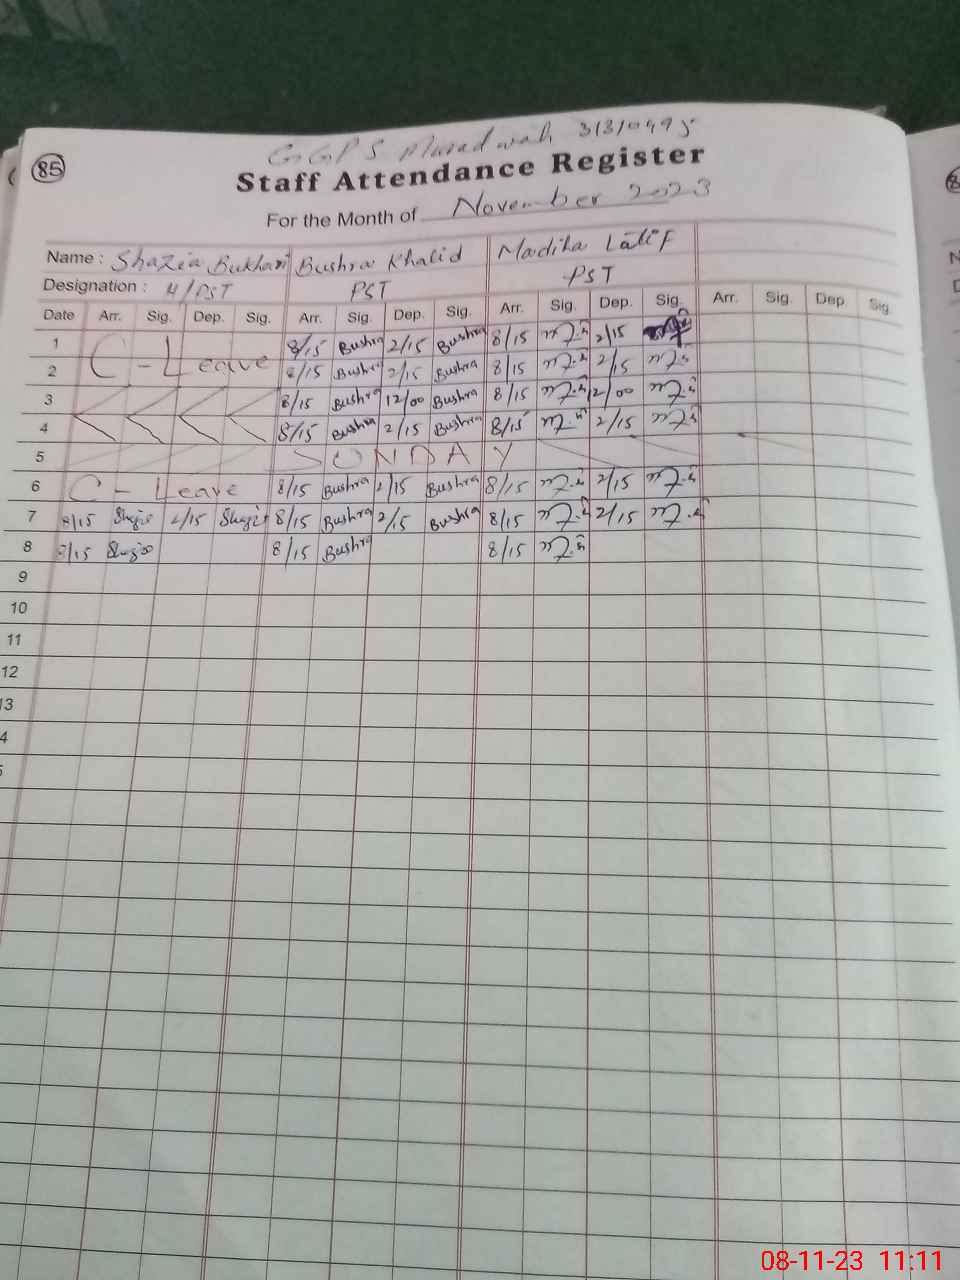 85
GGPS Muradwah 31310495
Staff Attendance Register
For the Month of November 2023
Name : Shazia Bukhari Bushra Khalid Madiha Latif
Designation : H/PST PST PST
Date Arr. Sig. Dep. Sig. Arr. Sig. Dep. Sig. Arr. Sig. Dep. Sig. Arr. Sig. Dep. Sig.
1 8/15 Bushra 2/15 Bushra 8/15 2/15
C - Leave
2 8/15 Bushra 2/15 Bushra 8/15 2/15
3 8/15 Bushra 12/00 Bushra 8/15 12/00
4 8/15 Bushra 2/15 Bushra 8/15 2/15
5 SUNDAY
6 C - Leave 8/15 Bushra 2/15 Bushra 8/15 2/15
7 8/15 Shazia 2/15 Shazia 8/15 Bushra 2/15 Bushra 8/15 2/15
8 8/15 Shazia 8/15 Bushra 8/15
9
10
11
12
13
4
5
08-11-23 11:11